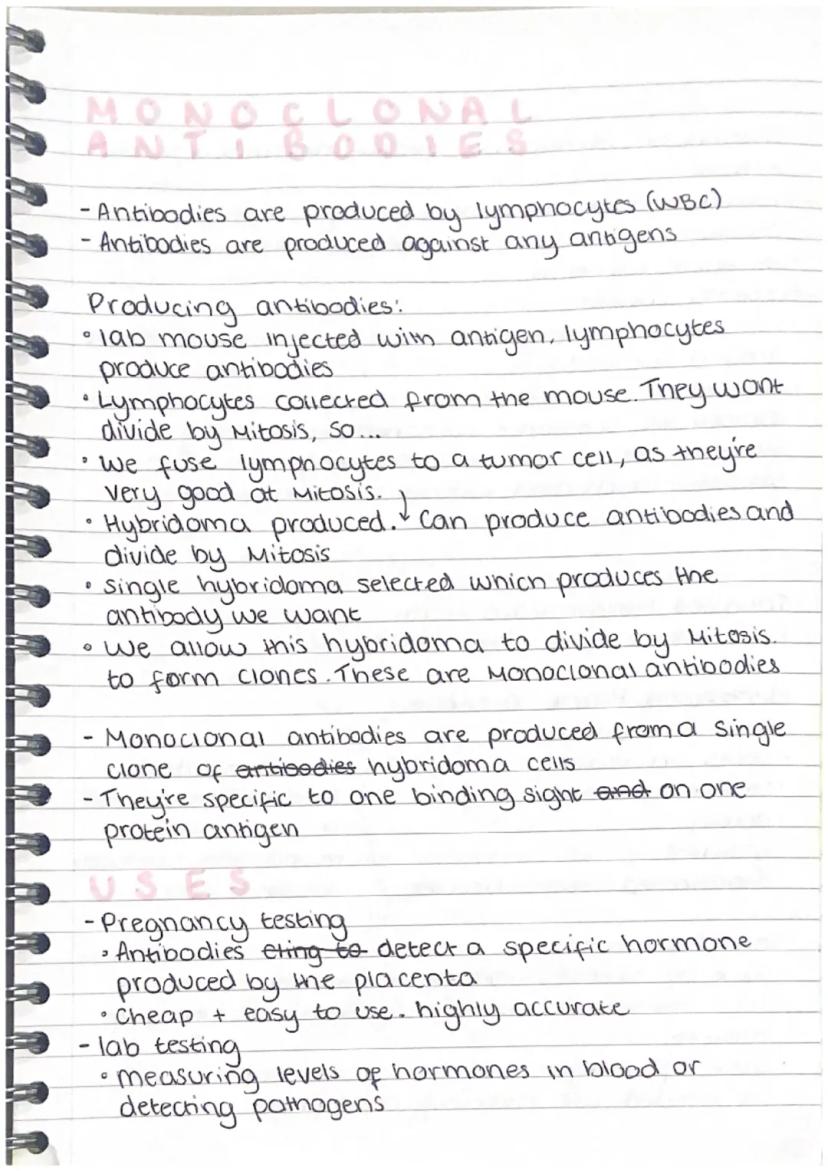 MONOCLONAL
ANTIBODIES
- Antibodies are produced by lymphocytes (WBC)
- Antibodies are produced against any antigens
Producing antibodies:
• lab mouse injected with antigen, lymphocytes
produce antibodies
• Lymphocytes collected from the mouse. They wont
divide by Mitosis, so...
• We fuse lymphocytes to a tumor cell, as they're
very good at Mitosis.
• Hybridoma produced. ↓ Can produce antibodies and
divide by Mitosis
• Single hybridoma selected which produces the
antibody we want
• We allow this hybridoma to divide by Mitosis.
to form clones. These are Monoclonal antibodies
- Monoclonal antibodies are produced from a single
clone of antibodies hybridoma cells
- They're specific to one binding sight and on one
protein antigen
USES
- Pregnancy testing
• Antibodies cling to detect a specific hormone
produced by the placenta
• Cheap + easy to use. highly accurate
- lab testing
• measuring levels of hormones in blood or
detecting pathogens